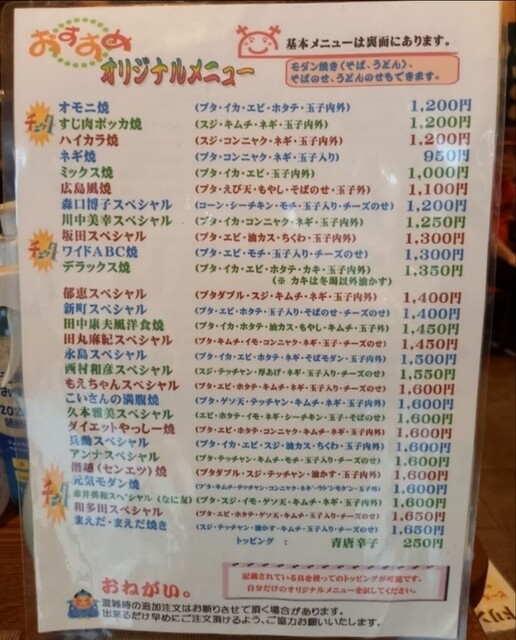 おすすめ
オリジナルメニュー
基本メニューは裏面にあります。
モダン焼き(そば、うどん)、
そばのせ、うどんのせもできます。
チェック
オモニ焼 (ブタ・イカ・エビ・ホタテ・玉子内外) 1,200円
すじ肉ポッカ焼 (スジ・キムチ・ネギ・玉子内外) 1,200円
ハイカラ焼 (スジ・コンニャク・ネギ・玉子内外) 1,200円
ネギ焼 (ブタ・コンニャク・ネギ・玉子入り) 950円
ミックス焼 (ブタ・イカ・エビ・玉子内外) 1,000円
広島風焼 (ブタ・えび天・もやし・そばのせ・玉子外) 1,100円
森口博子スペシャル (コーン・シーチキン・モチ・玉子入り・チーズのせ) 1,200円
川中美幸スペシャル (ブタ・イカ・コンニャク・ネギ・玉子内外) 1,250円
坂田スペシャル (ブタ・エビ・油カス・ちくわ・玉子内外) 1,300円
チェック
ワイドABC焼 (ブタ・エビ・モチ・玉子入り・チーズのせ) 1,300円
デラックス焼 (ブタ・イカ・エビ・ホタテ・カキ・玉子内外) 1,350円
(※ カキは冬場以外油かす)
郁恵スペシャル (ブタダブル・スジ・キムチ・ネギ・玉子内外) 1,400円
新町スペシャル (ブタ・エビ・ホタテ・玉子入り・そばのせ・チーズのせ) 1,400円
田中康夫風洋食焼 (ブタ・イカ・ホタテ・油カス・もやし・キムチ・玉子外) 1,450円
田丸麻紀スペシャル (ブタ・キムチ・イモ・コンニャク・ネギ・玉子・チーズのせ) 1,450円
永島スペシャル (ブタ・イカ・エビ・ホタテ・ネギ・そばモダン・玉子内外) 1,500円
西村和彦スペシャル (スジ・テッチャン・厚あげ・ネギ・玉子入り・チーズのせ) 1,550円
もえちゃんスペシャル (ブタ・エビ・ホタテ・キムチ・モチ・玉子入り・チーズのせ) 1,600円
こいさんの満腹焼 (ブタ・ゲソ天・テッチャン・キムチ・ネギ・玉子内外) 1,600円
久本雅美スペシャル (エビ・ホタテ・イモ・ネギ・シーチキン・玉子・そばのせ) 1,600円
ダイエットやっしー焼 (ブタ・エビ・ホタテ・キムチ・コンニャク・ネギ・玉子内外) 1,600円
兵動スペシャル (ブタ・イカ・エビ・スジ・油カス・ちくわ・玉子内外) 1,600円
アンナスペシャル (ブタ・テッチャン・キムチ・モチ・玉子入り・チーズのせ) 1,600円
僭越(センエツ)焼 (ブタダブル・スジ・テッチャン・油かす・玉子内外) 1,600円
元気モダン焼 (ブタ・キムチ・テッチャン・コンニャク・ネギ・ウドンモダン・玉子外) 1,600円
チェック
赤井英和スペシャル(なに友) (ブタ・スジ・イモ・ゲソ天・キムチ・ネギ・玉子内外) 1,600円
和多田スペシャル (ブタ・エビ・ホタテ・ゲソ天・キムチ・ネギ・玉子・チーズのせ) 1,650円
まえだ・まえだ焼き (スジ・テッチャン・油かす・キムチ・玉子入り・チーズのせ) 1,650円
トッピング : 青唐辛子 250円
記載されている具を使ってのトッピングが可能です。
自分だけのオリジナルメニューを試してください。
おねがい。
混雑時の追加注文はお断りさせて頂く場合があります。
出来るだけ早めにご注文頂けるよう、ご協力お願いいたします。